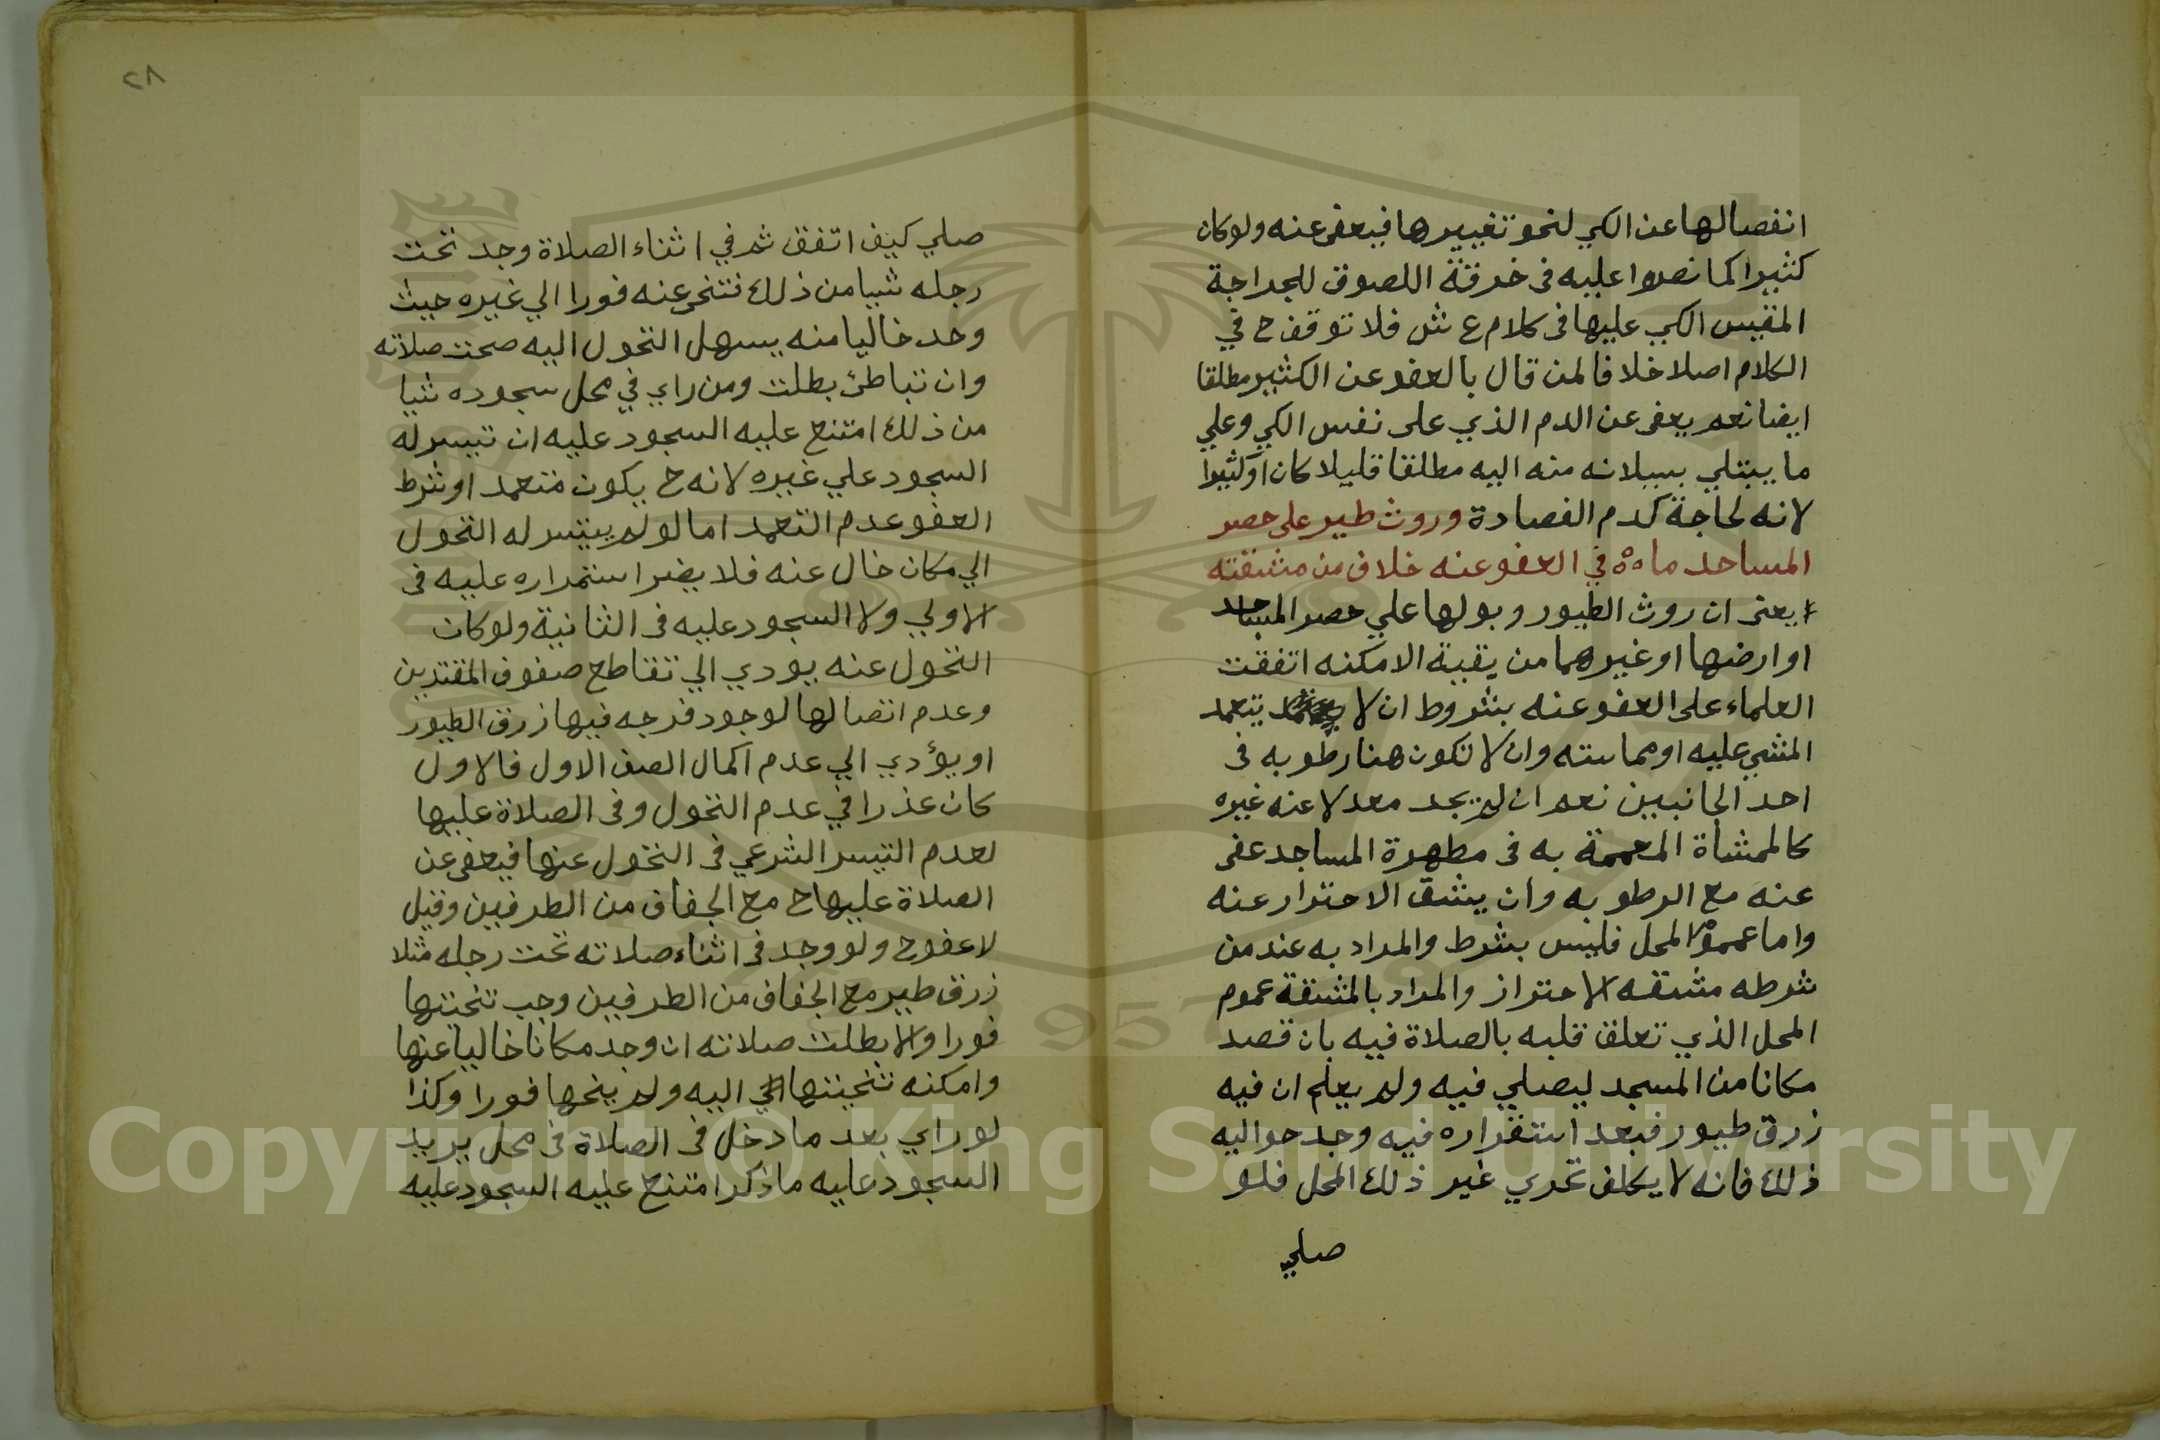 انفصالها عن الكي لنحو تغييرها فيعفى عنه ولو كان
كثيرا كما نصوا عليه في خرقة اللصوق للجراحة
المقيس الكي عليها في كلام ع ش فلا توقف ح في
الكلام اصلا خلافا لمن قال بالعفو عن الكثير مطلقا
ايضا نعم يعفى عن الدم الذي على نفس الكي وعلي
ما يبتلي بسيلانه منه اليه مطلقا قليلا كان او كثيرا
لانه لحاجة كدم الفصادة وروث طير على حصر
المساجد ما في العفو عنه خلاف من مشقته
يعني ان روث الطيور وبولها علي حصر المساجد
او ارضها او غيرهما من بقية الامكنه اتفقت
العلماء على العفو عنه بشروط ان لا يتعمد
المشي عليه او مماسته وان لا تكون هنا رطوبه في
احد الجانبين نعم ان لم يجد معدلا عنه غيره
كالممشاة المعممة به في مطهرة المساجد عفى
عنه مع الرطوبه وان يشق الاحتراز عنه
واما عموم المحل فليس بشرط والمراد به عند من
شرطه مشقه الاحتراز والمراد بالمشقة عموم
المحل الذي تعلق قلبه بالصلاة فيه بان قصد
مكانا من المسجد ليصلي فيه ولم يعلم ان فيه
زرق طيور فبعد استقراره فيه وجد حواليه
ذلك فانه لا يكلف تحري غير ذلك المحل فلو
صلي
٢٨
صلي كيف اتفق ثم في اثناء الصلاة وجد تحت
رجله شيا من ذلك فتنحى عنه فورا الي غيره حيث
وجد خاليا منه يسهل التحول اليه صحت صلاته
وان تباطئ بطلت ومن راي في محل سجوده شيا
من ذلك امتنع عليه السجود عليه ان تيسر له
السجود علي غيره لانه ح يكون متعمدا وشرط
العفو عدم التعمد اما لو لم يتيسر له التحول
الي مكان خال عنه فلا يضر استمراره عليه في
الاولي ولا السجود عليه في الثانية ولو كان
التحول عنه يودي الي تقاطع صفوف المقتدين
وعدم اتصالها لوجود فرجه فيها زرق الطيور
او يؤدي الي عدم اكمال الصف الاول فالاول
كان عذرا في عدم التحول وفي الصلاة عليها
لعدم التيسر الشرعي في التحول عنها فيعفى عن
الصلاة عليها ح مع الجفاف من الطرفين وقيل
لا عفو ح ولو وجد في اثناء صلاته تحت رجله مثلا
زرق طير مع الجفاف من الطرفين وجب تنحيتها
فورا والا بطلت صلاته ان وجد مكانا خاليا عنها
وامكنه تنحيتها اليه ولم ينحها فورا وكذا
لو راي بعد ما دخل في الصلاة في محل يريد
السجود عليه ما ذكر امتنع عليه السجود عليه
Copyright © King Saud University
1957